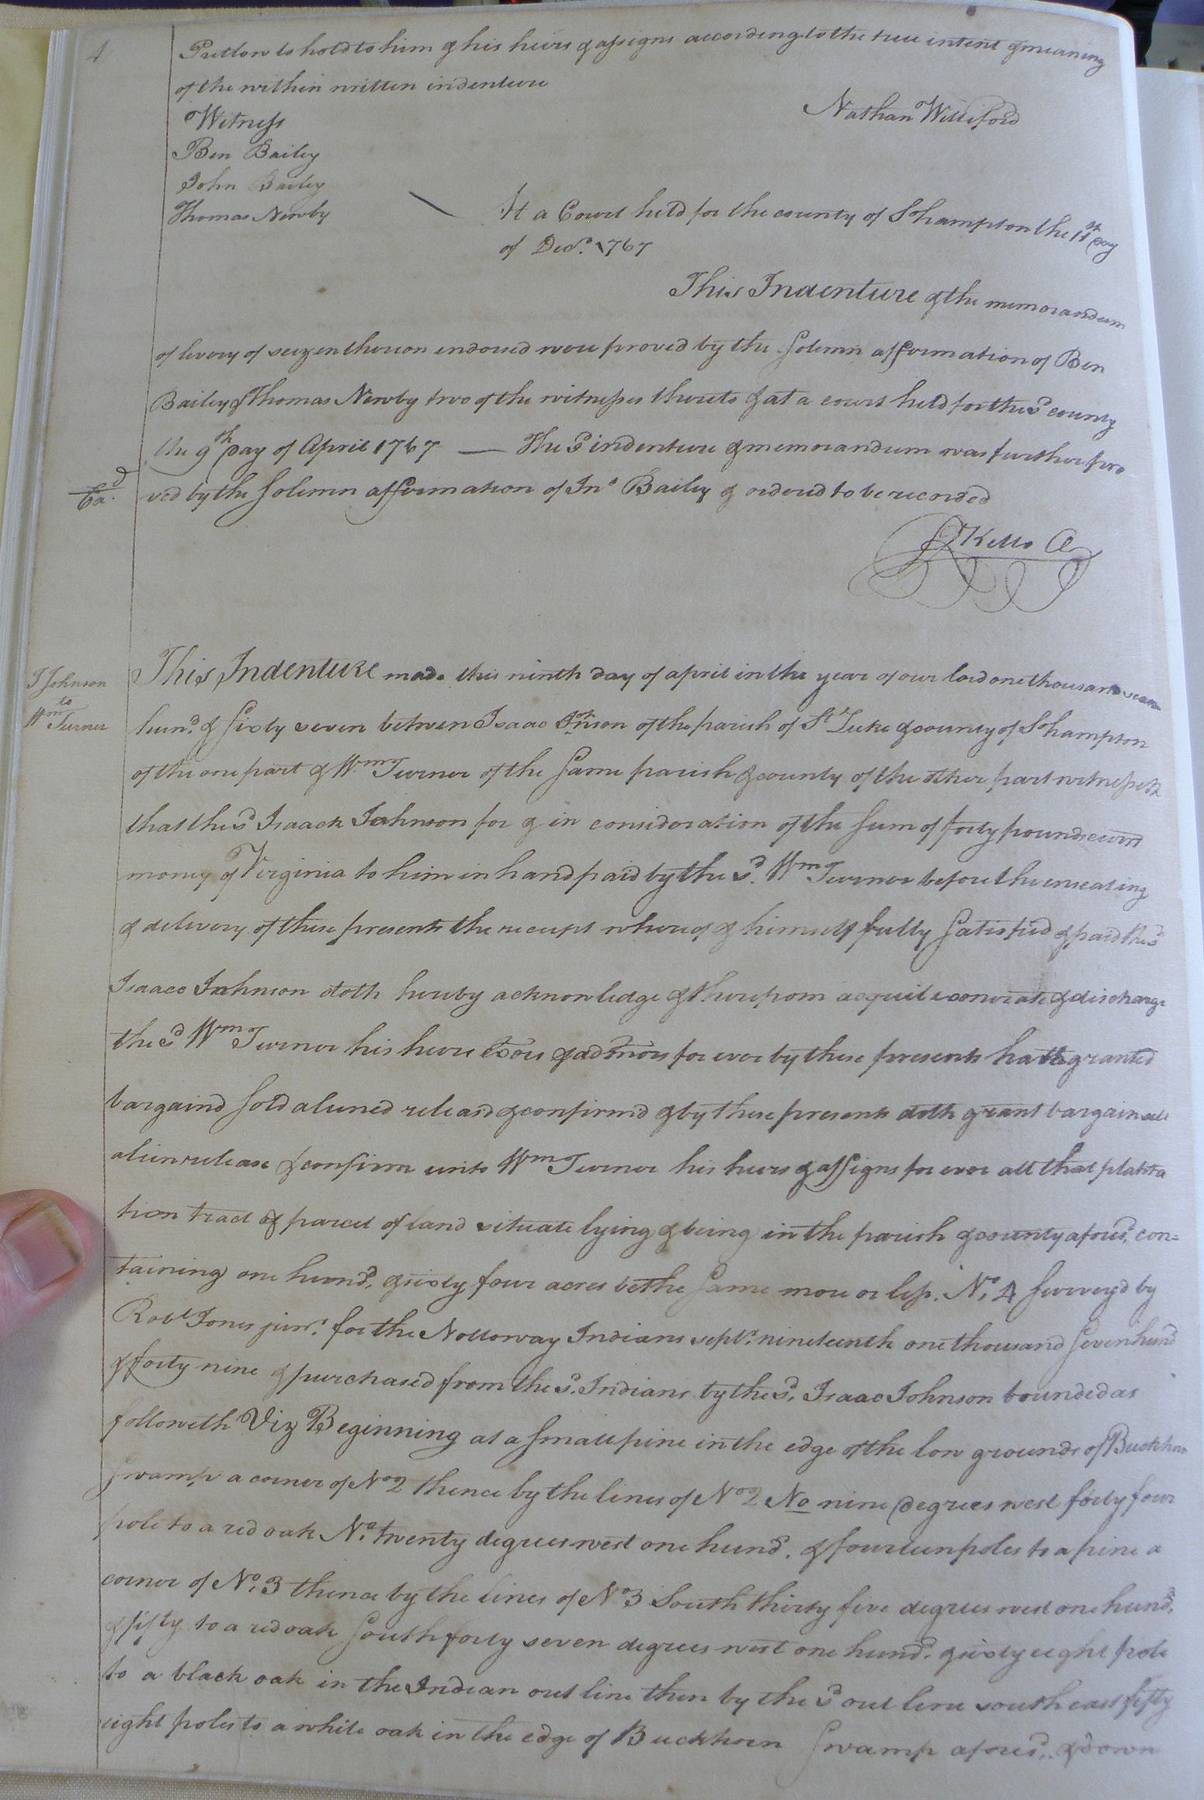 4
Pretlow to hold to him & his heirs & assigns according to the true intent & meaning
of the within written indenture
Nathan Williford
Witness
Ben Bailey
John Bailey
Thomas Newby
At a Court held for the county of Sohampton the 11th day
of Decr. 1767
This Indenture & the memorandum
of livery of seizen thereon endorsed were proved by the Solemn affirmation of Ben
Bailey & Thomas Newby two of the witnesses thereto & at a court held for the sd county
the 9th day of April 1767 — The sd indenture & memorandum was further pro
ved by the Solemn affirmation of Jno Bailey & ordered to be recorded
Ead
R Kello C
J Johnson
to
Wm Turner
This Indenture made this ninth day of april in the year of our lord one thousand seven
hund. & Sixty seven between Isaac Jnson of the parish of St Luke & county of Sohampton
of the one part & Wm Turner of the Same parish & county of the other part witnesseth
that the sd Isaack Johnson for & in consideration of the Sum of forty pounds curt
money of Virginia to him in hand paid by the sd. Wm Turner before the ensealing
& delivery of these presents the receipt whereof & himself fully Satisfied & paid the sd
Isaac Johnson doth hereby acknowledge & therefrom acquit exonerate & discharge
the sd Wm Turner his heirs Exors & admors for ever by these presents hath granted
bargaind Sold aliened releasd & confirmd & by these presents doth grant bargain sell
alien release & confirm unto Wm Turner his heirs & assigns for ever all that planta
tion tract & parcel of land situate lying & being in the parish & county aforesd. con=
taining one hund. & sixty four acres be the Same more or less. No. 4 Surveyd by
Robt Jones junr. for the Nottoway Indians septr. nineteenth one thousand Seven hund
& forty nine & purchased from the sd. Indians by the sd. Isaac Johnson bounded as
followeth Viz Beginning at a Small pine in the edge of the low grounds of Buckhorn
Swamp a corner of No 2 thence by the lines of No 2 No nine degrees west forty four
pole to a red oak No. twenty degrees west one hund. & fourteen poles to a pine a
corner of No. 3 thence by the lines of No 3 South thirty five degrees west one hund.
& fifty to a red oak South forty seven degrees west one hund. & sixty eight pole
to a black oak in the Indian out line then by the sd out line south east fifty
eight poles to a white oak in the edge of Buckhorn Swamp aforesd. & down